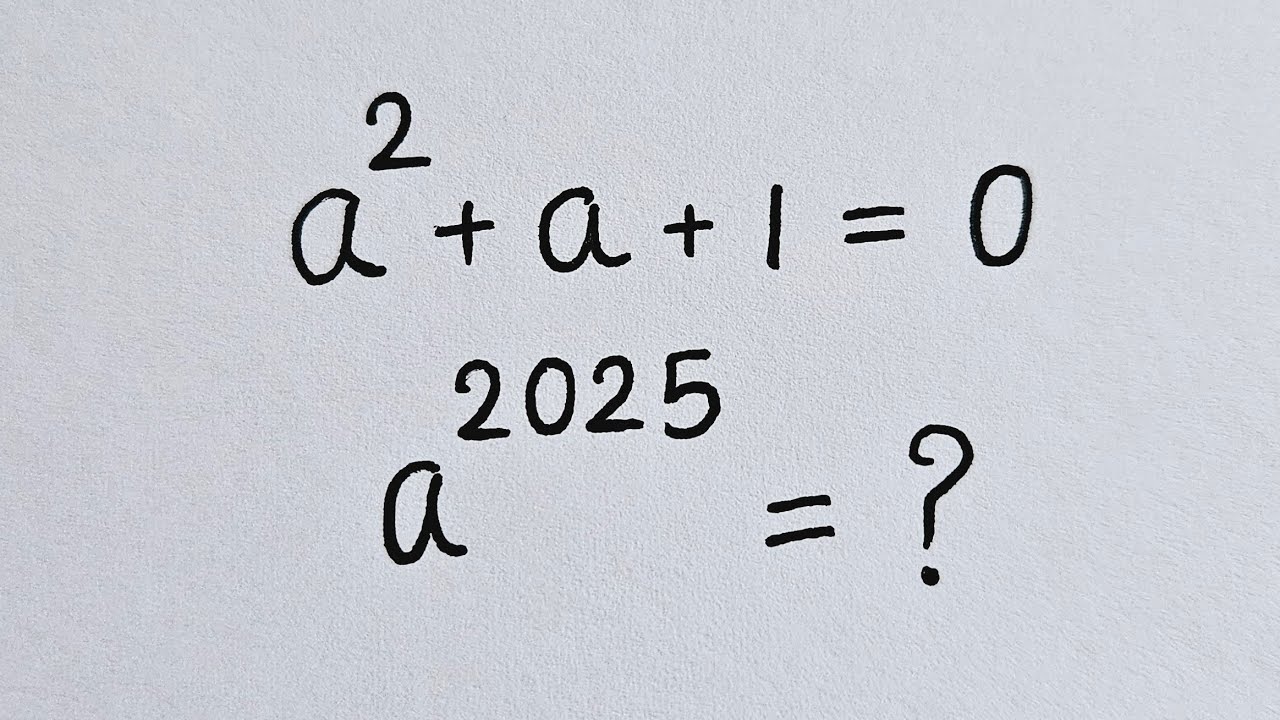 a² + a + 1 = 0
a²⁰²⁵ = ?